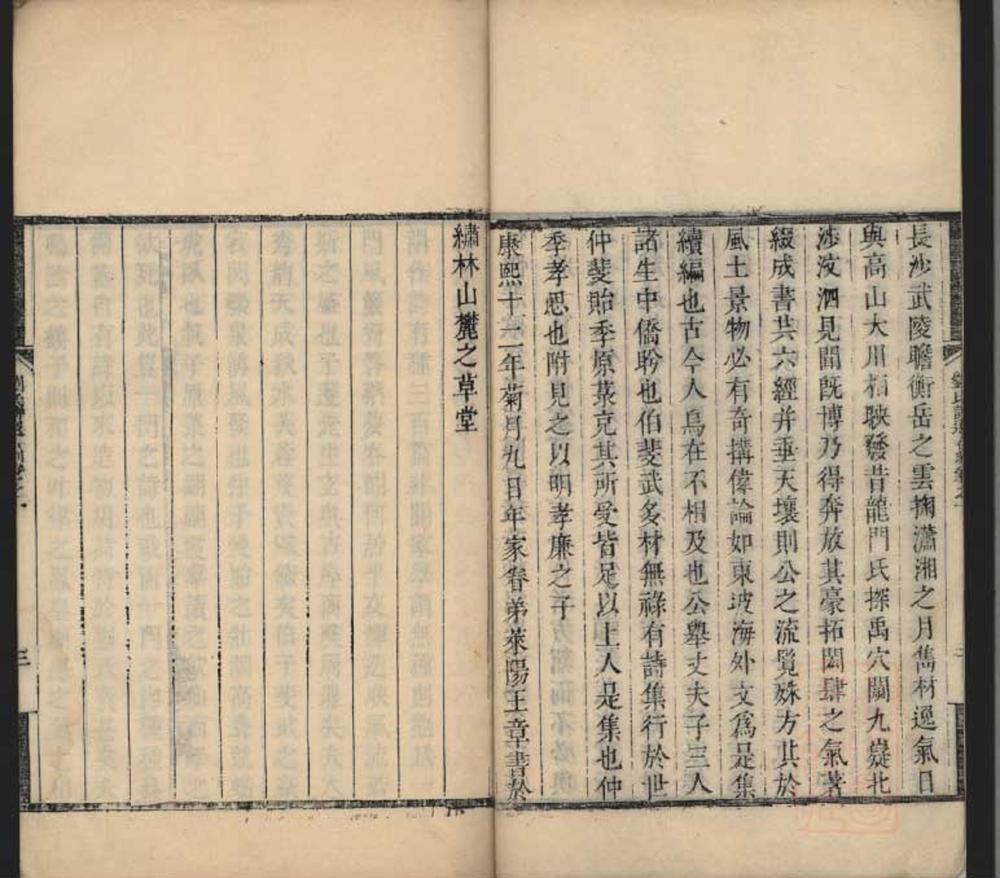 長沙武陵瞻衡岳之雲掬瀟湘之月雋材逸氣日
與高山大川相映發昔龍門氏探禹穴闚九嶷北
涉汶泗見聞既博乃得奔放其豪拓閎肆之氣著
綴成書共六經并垂天壤則公之流覽殊方其於
風土景物必有奇搆偉論如東坡海外文為是集
續編也古今人烏在不相及也公舉丈夫子三人
諸生中僑肹也伯斐武多材無祿有詩集行於世
仲斐貽季原棻克其所受皆足以上人是集也仲
季孝思也附見之以明孝廉之子
康熙十一年菊月九日年家眷弟萊陽王章書於
繡林山麓之草堂
三